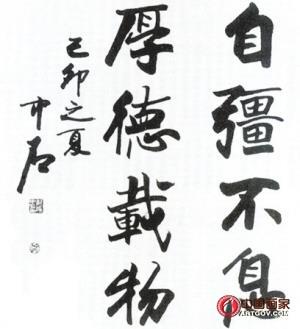 自彊不息
厚德載物
己卯之夏
中石
中国画家
ARTGOV.COM